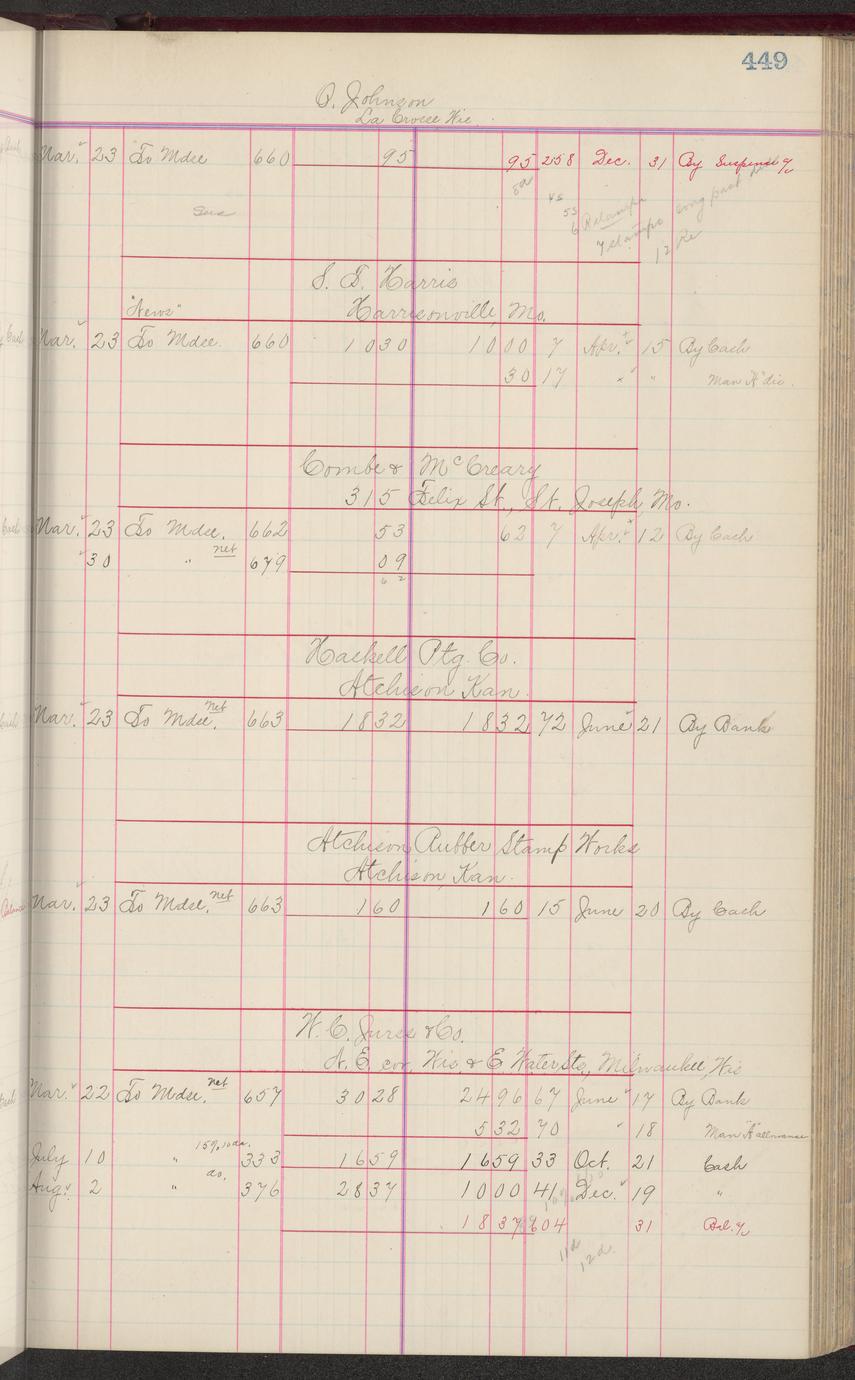 449
O. Johnson
La Crosse, Wis.
Mar. 23 To Mdse 660 95 95 258 Dec. 31 By Suspense %
Sus
S. T. Harris
"News" Harrisonville, Mo.
Mar. 23 To Mdse. 660 10 30 10 00 7 Apr. 15 By Cash
30 17 " " Man "A" dis.
Combe & McCreary
315 Felix St., St. Joseph, Mo.
Mar. 23 To Mdse. 662 53 62 7 Apr. 12 By Cash
30 " net 679 09
62
Haskell Ptg. Co.
Atchison Kan.
Mar. 23 To Mdse. net 663 18 32 18 32 72 June 21 By Bank
Atchison Rubber Stamp Works
Atchison, Kan.
Mar. 23 To Mdse. net 663 1 60 1 60 15 June 20 By Cash
W. C. & Co.
N. E. cor. Wis & E Water Sts, Milwaukee, Wis
Mar. 22 To Mdse. net 657 30 28 24 96 67 June 17 By Bank
5 32 70 " 18 Man "A" allowance
July 10 " 15%, 10 da. 333 16 59 16 59 33 Oct. 21 Cash
Aug. 2 " do. 376 28 37 10 00 41 Dec. 19 "
18 37 604 31 Bal. %
11 d
12 d.